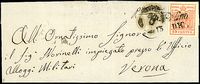 All'Ornatissimo Signore
il Sig. Novinetti impiegato presso l'Ufficio
Alloggi Militari
Verona